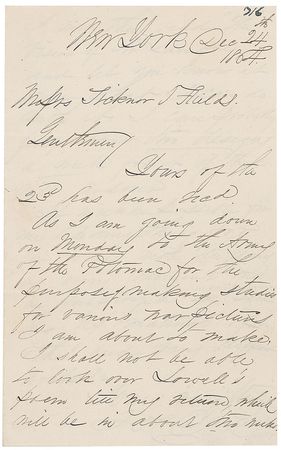 316
New York Dec 24th
1864.
Messrs Ticknor & Fields.
Gentlemen
Yours of the
23d has been recd.
As I am going down
on Monday to the Army
of the Potomac for the
purpose of making studies
for various war pictures
I am about to make
I shall not be able
to look over Lowell's
Poem till my return which
will be in about two weeks